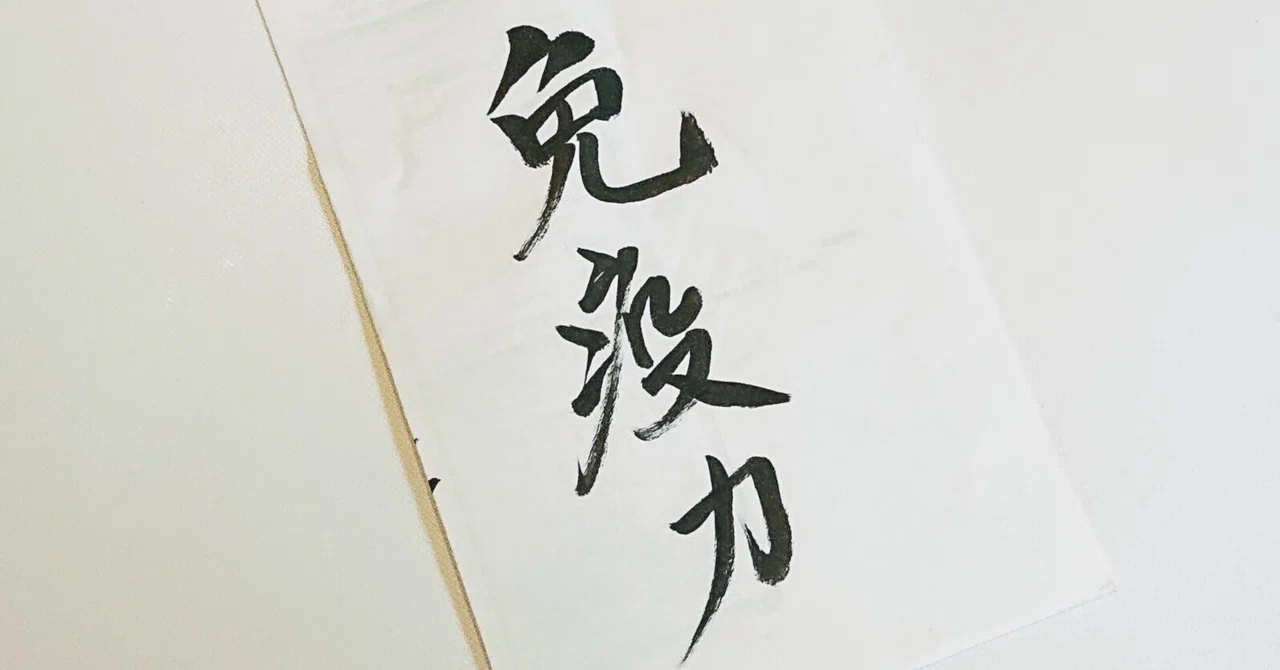 免疫力